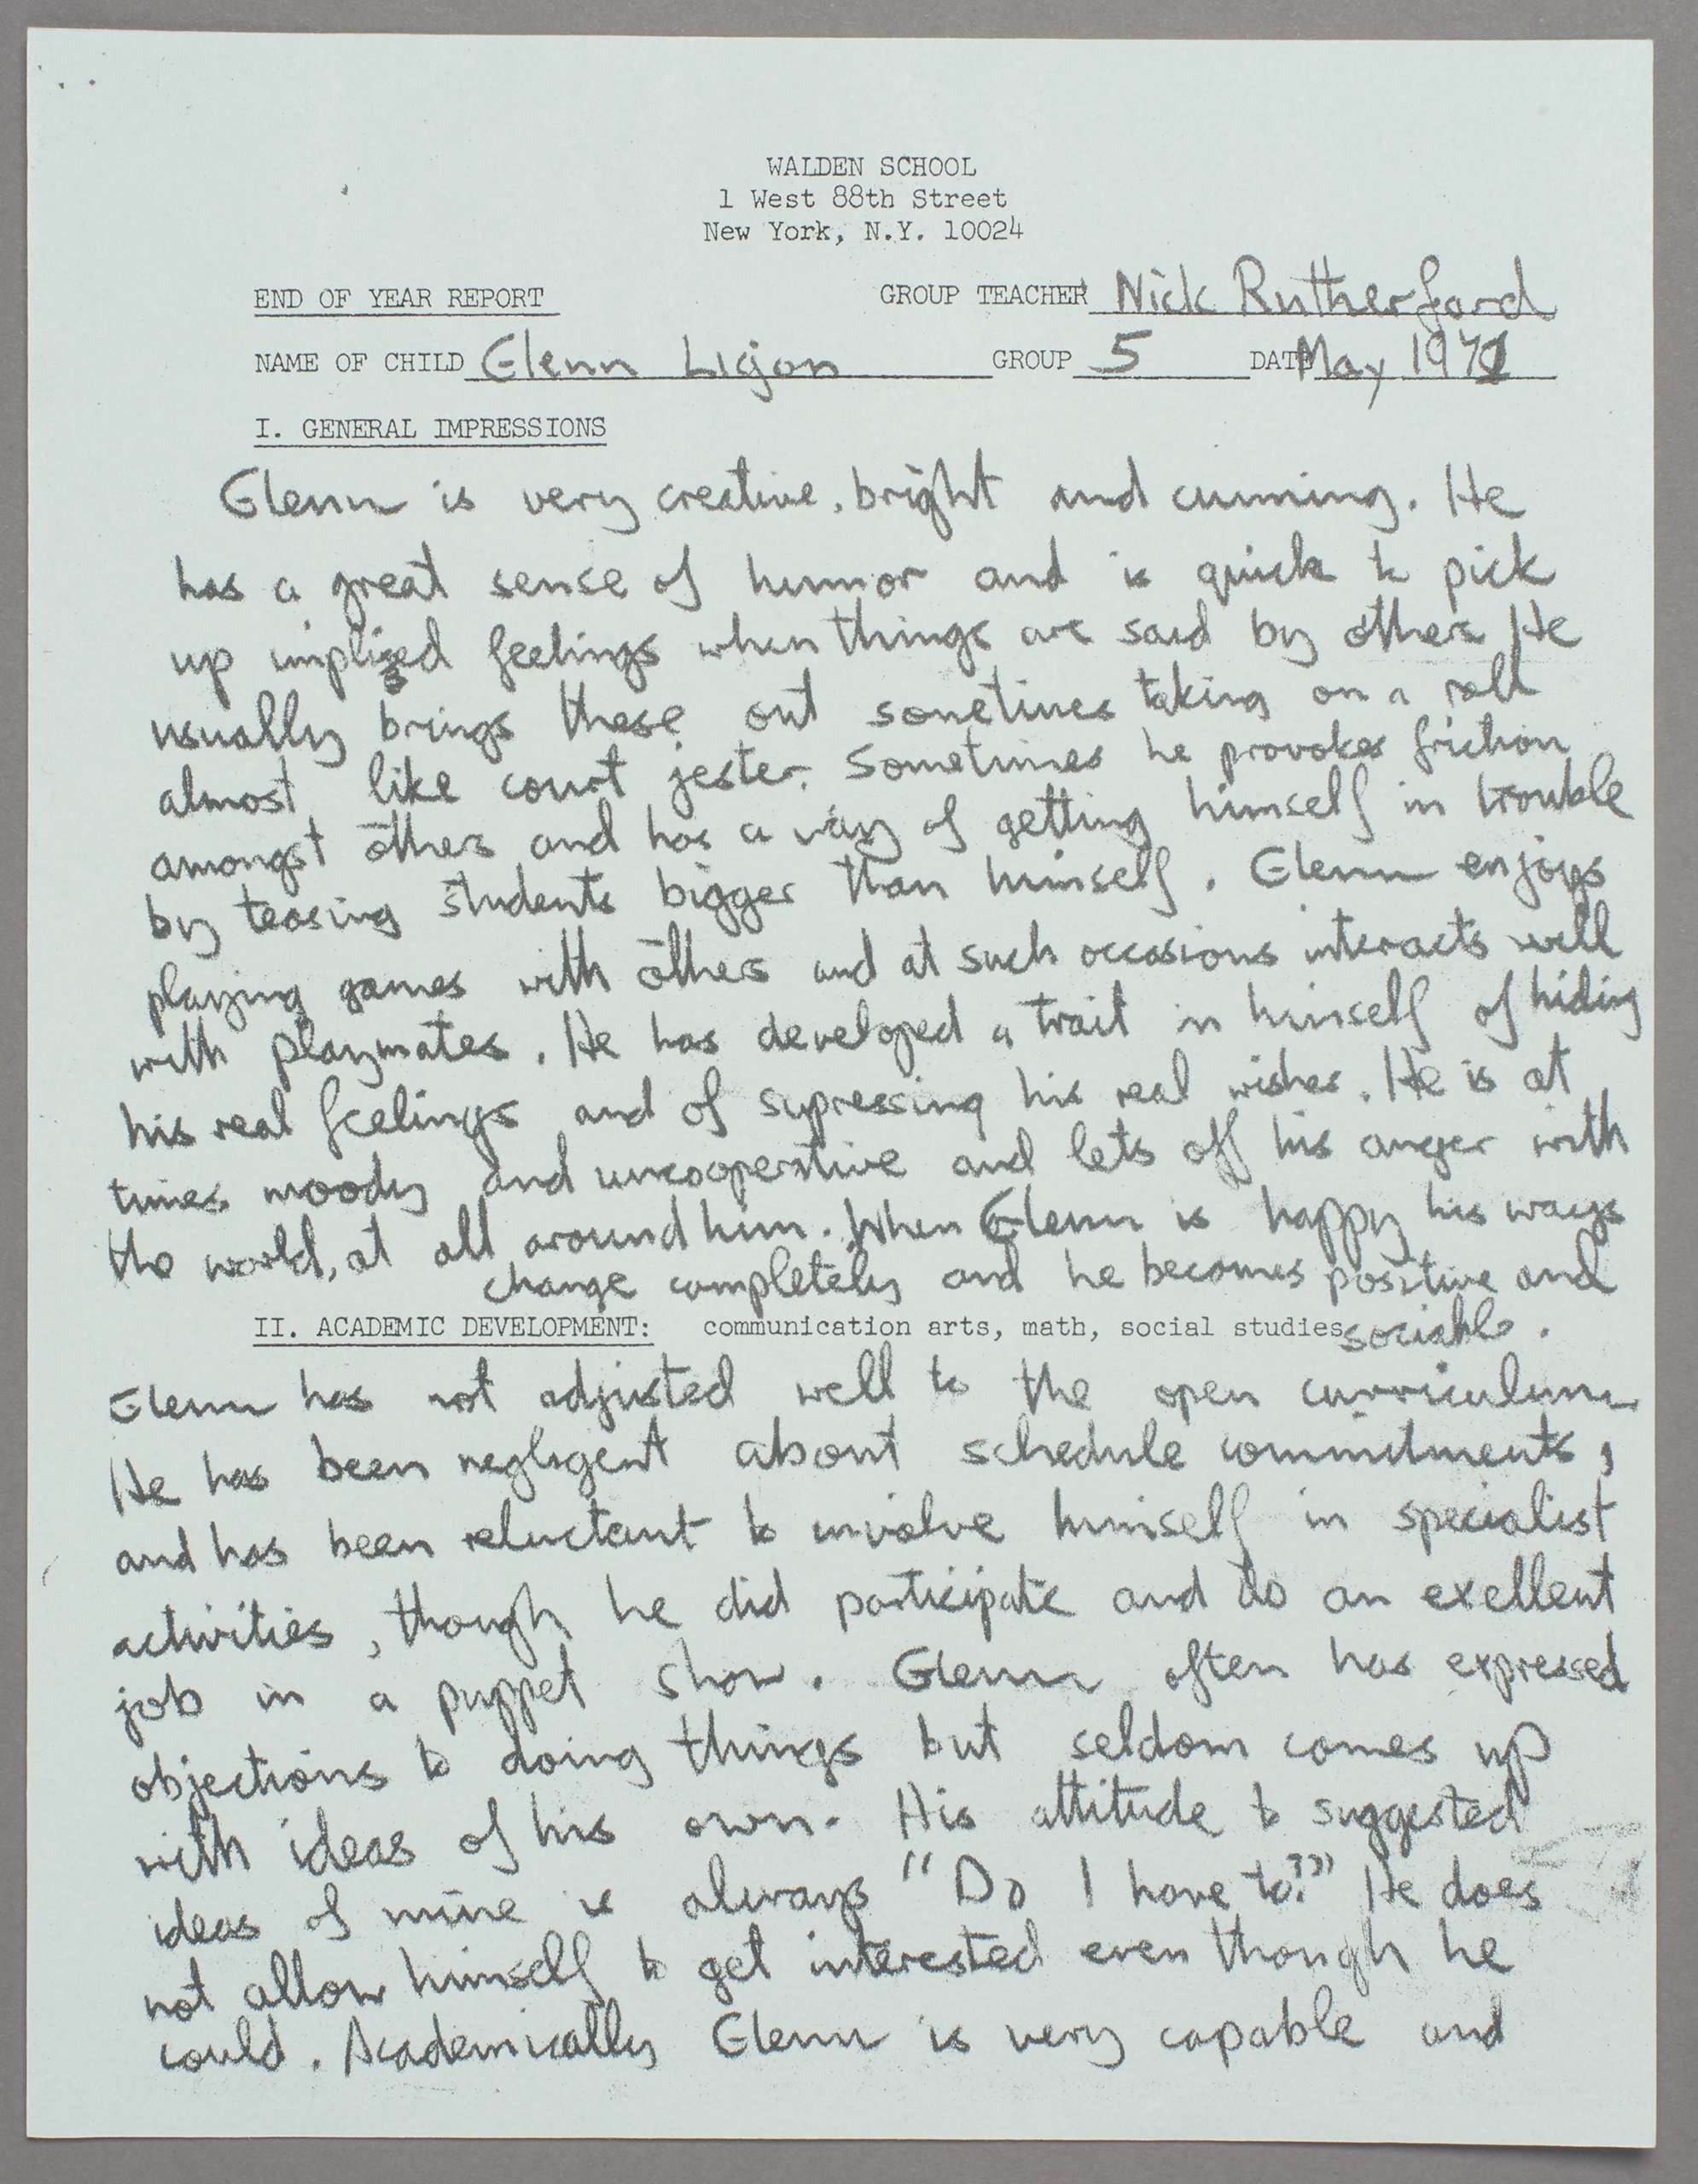 WALDEN SCHOOL
1 West 88th Street
New York, N.Y. 10024
END OF YEAR REPORT GROUP TEACHER Nick Rutherford
NAME OF CHILD Glenn Ligon GROUP 5 DATE May 1971
I. GENERAL IMPRESSIONS
Glenn is very creative, bright and cunning. He
has a great sense of humor and is quick to pick
up implied feelings when things are said by others. He
usually brings these out sometimes taking on a roll
almost like court jester. Sometimes he provokes friction
amongst others and has a way of getting himself in trouble
by teasing students bigger than himself. Glenn enjoys
playing games with others and at such occasions interacts well
with playmates. He has developed a trait in himself of hiding
his real feelings and of supressing his real wishes. He is at
times moody and uncooperative and lets off his anger with
the world, at all around him. When Glenn is happy his ways
change completely and he becomes positive and
sociable.
II. ACADEMIC DEVELOPMENT: communication arts, math, social studies
Glenn has not adjusted well to the open curriculum
He has been negligent about schedule commitments,
and has been reluctant to involve himself in specialist
activities, though he did participate and do an exellent
job in a puppet show. Glenn often has expressed
objections to doing things but seldom comes up
with ideas of his own. His attitude to suggested
ideas of mine is always "Do I have to??" He does
not allow himself to get interested even though he
could. Academically Glenn is very capable and